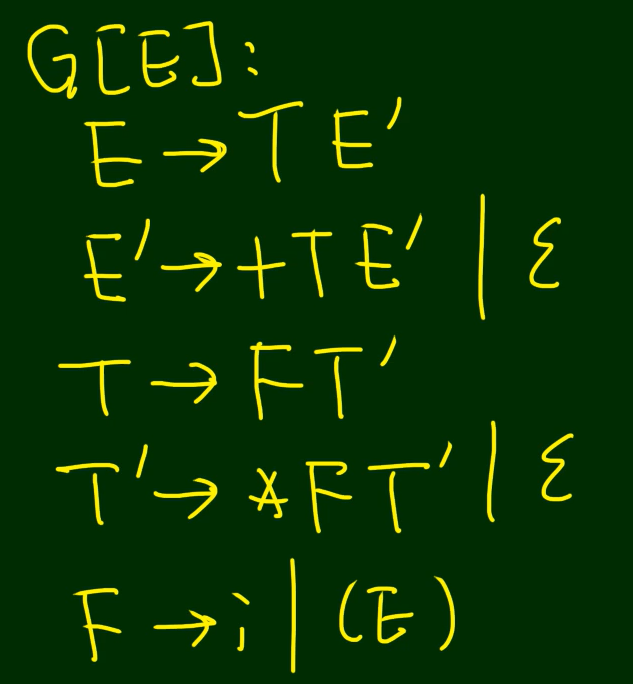 G[E]:
E → T E'
E' → + T E' | ε
T → F T'
T' → * F T' | ε
F → i | (E)